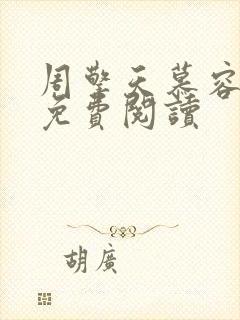 周擎天慕容
免費閱讀
胡廣